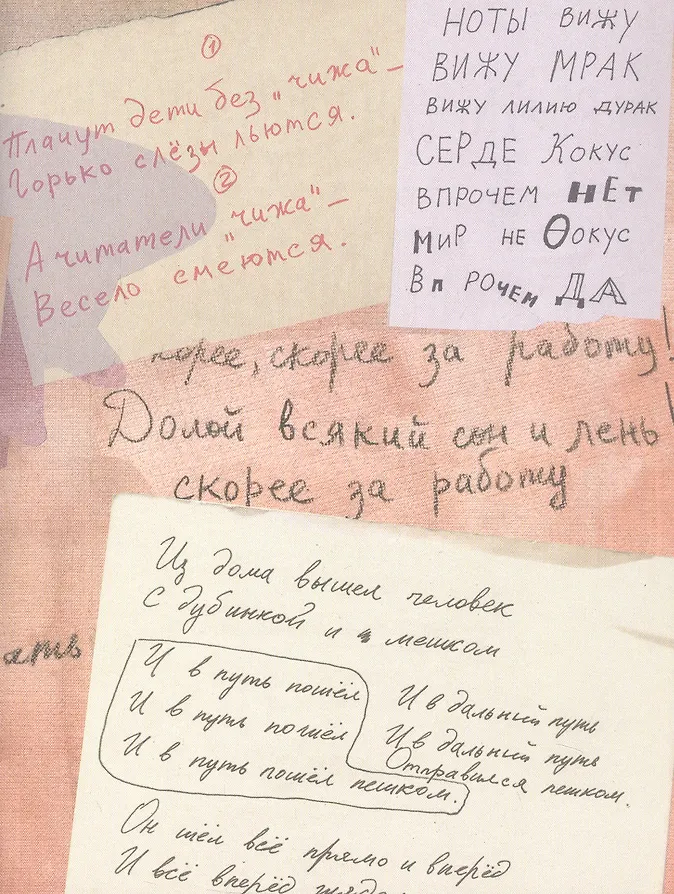 ①
Плачут дети без "чижа" –
Горько слёзы льются.
②
А читатели "чижа" –
Весело смеются.
НОТЫ ВИЖУ
ВИЖУ МРАК
ВИЖУ ЛИЛИЮ ДУРАК
СЕРДЕ КОКУС
ВПРОЧЕМ НЕТ
МИР НЕ ѲОКУС
ВПРОЧЕМ ДА
корее, скорее за работу!
Долой всякий сон и лень!
скорее за работу
Из дома вышел человек
С дубинкой и мешком
И в путь пошёл
И в путь пошёл
И в путь пошёл пешком.
И в дальний путь
И в дальний путь
Отправился пешком.
ать
Он шёл всё прямо и вперёд
И всё вперёд